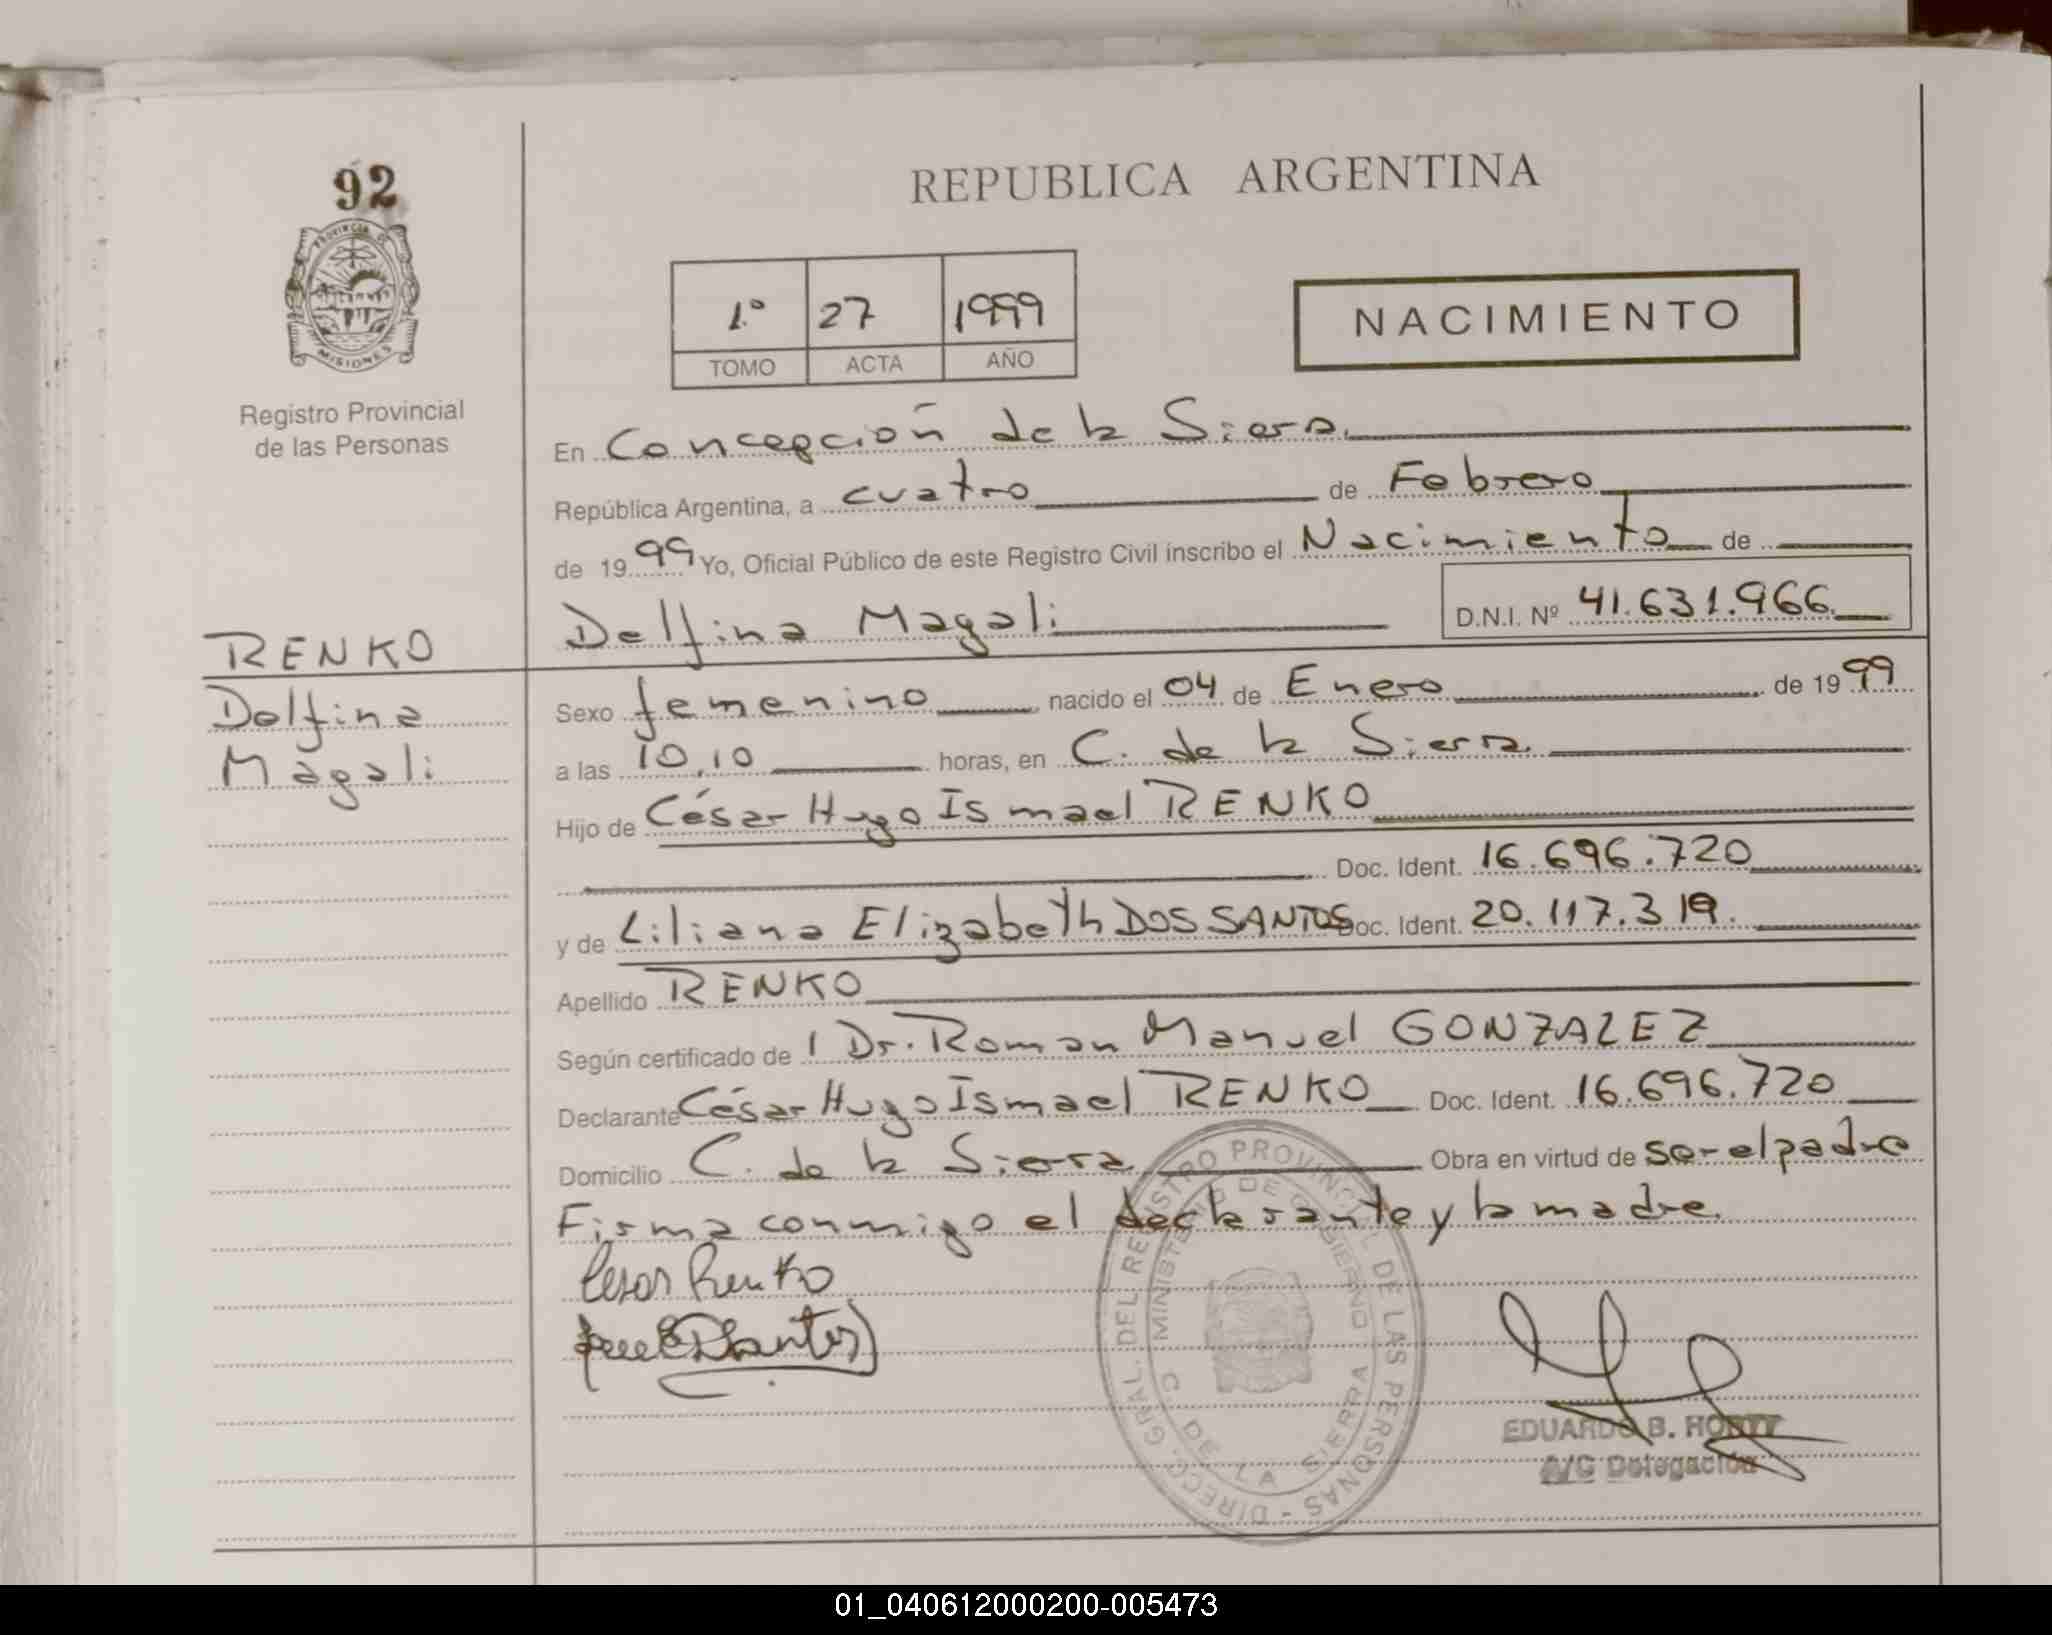 92
PROVINCIA DE
MISIONES
Registro Provincial
de las Personas
REPUBLICA ARGENTINA
1º 27 1999
TOMO ACTA AÑO
NACIMIENTO
En Concepción de la Sierra.
República Argentina, a cuatro de Febrero
de 1999 Yo, Oficial Público de este Registro Civil inscribo el Nacimiento de
Delfina Magali D.N.I. Nº 41.631.966.
RENKO
Delfina
Magali
Sexo femenino nacido el 04 de Enero de 1999
a las 10,10 horas, en C. de la Sierra.
Hijo de César Hugo Ismael RENKO
Doc. Ident. 16.696.720
y de Liliana Elizabeth DOS SANTOS Doc. Ident. 20.117.319.
Apellido RENKO
Según certificado de l Dr. Roman Manuel GONZALEZ
Declarante César Hugo Ismael RENKO Doc. Ident. 16.696.720
Domicilio C. de la Sierra Obra en virtud de ser el padre
Firma conmigo el declarante y la madre.
Cesar Renko
DIRECC. GRAL. DEL REGISTRO PROVINCIAL DE LAS PERSONAS -
MINISTERIO DE GOBIERNO
C. DE LA SIERRA
EDUARDO B.
A/C Delegación
01_040612000200-005473